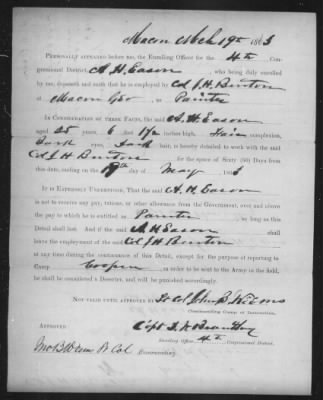 Macon Mch 19th 1863
PERSONALLY APPEARED before me, the Enrolling Officer for the 4th Con-
gressional District, A. H. Eason, who being duly enrolled
by me, deposeth and saith that he is employed by Col J. H. Burton
at Macon Geo as Painter
IN CONSIDERATION OF THESE FACTS, the said A. H. Eason
aged 25 years 6 feet 1/2 inches high, Fair complexion,
Dark eyes, Dark hair, is hereby detailed to work with the said
Col J. H. Burton for the space of Sixty (60) Days from
this date, ending on the 19th day of May 1863
IT IS EXPRESSLY UNDERSTOOD, That the said A. H. Eason
is not to receive any pay, rations, or other allowance from the Government, over and above
the pay to which he is entitled as Painter, so long as this
Detail shall last. And if the said A H Eason shall
leave the employment of the said Col J H Burton
at any time during the continuance of this Detail, except for the purpose of reporting to
Camp Cooper, in order to be sent to the Army in the field,
he shall be considered a Deserter, and will be punished accordingly.
NOT VALID UNTIL APPROVED BY Lt Col John B.
Commanding Camp of Instruction.
APPROVED Capt
Enrolling Officer 4th Congressional District.
Col